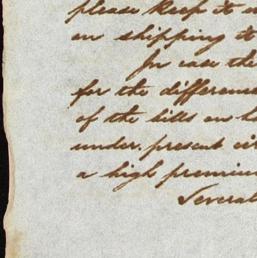 please keep it
on shipping to
In case the
for the difference
of the bills on
under, present cir
a high premium
Several